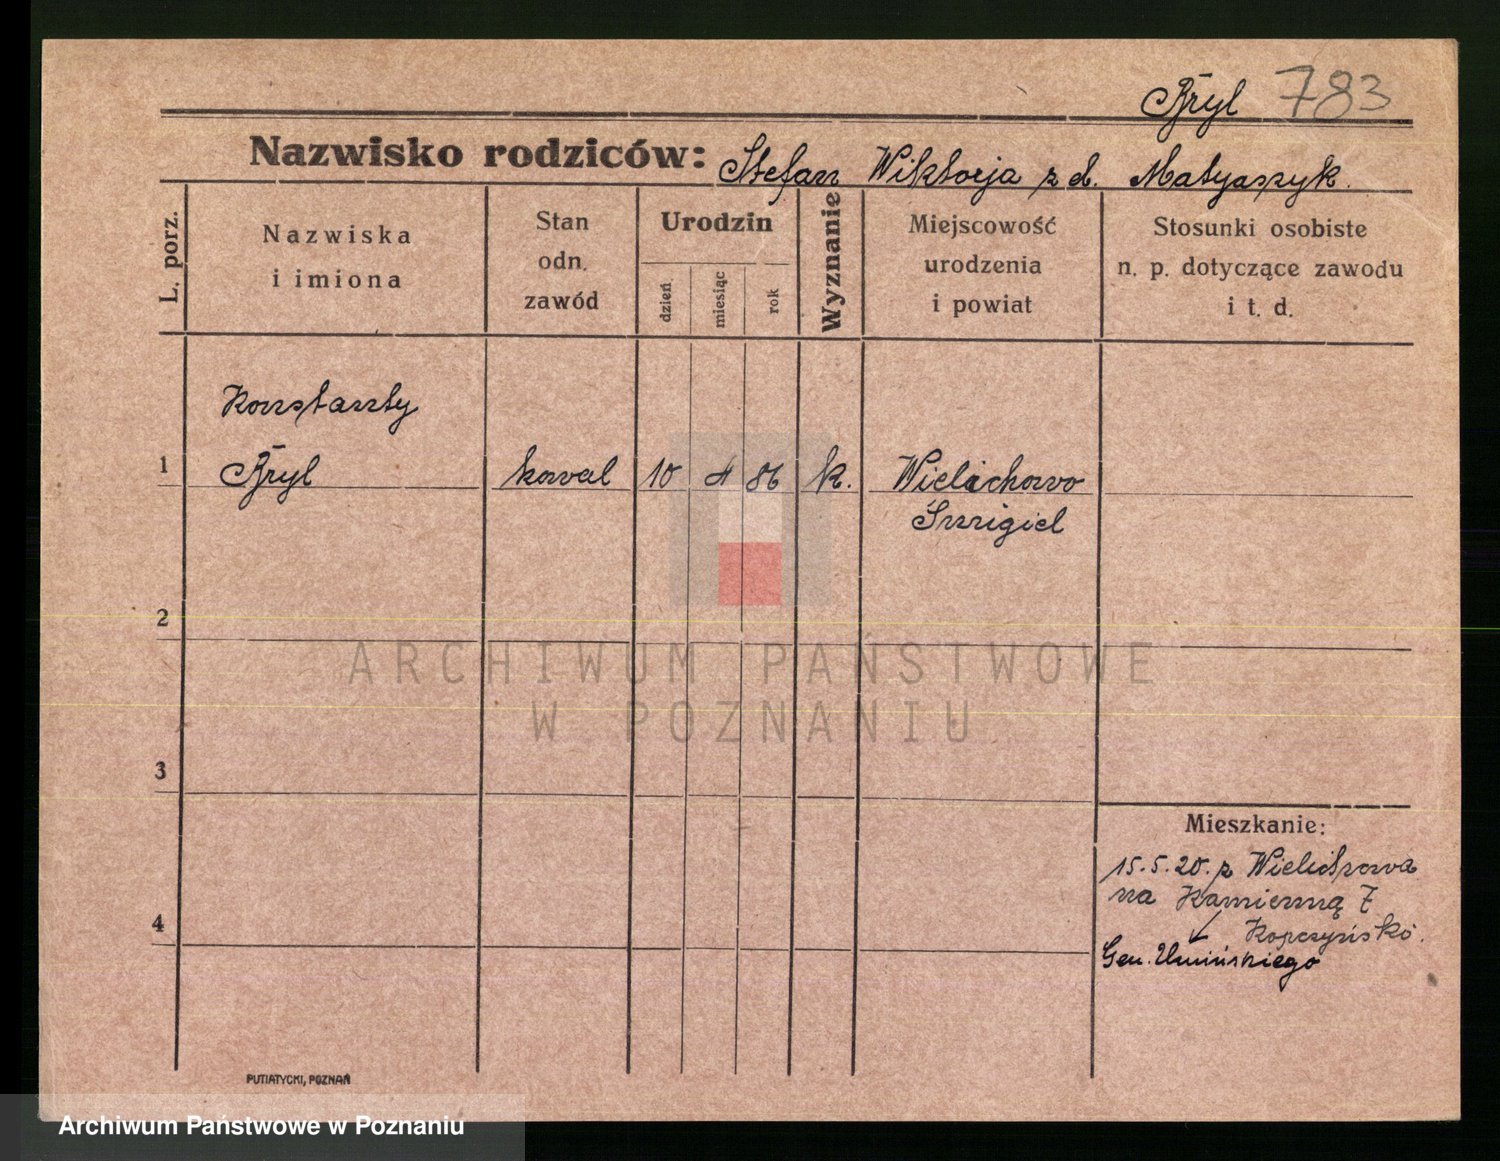 Bryl 783
Nazwisko rodziców: Stefan Wiktorja z d. Matyaszyk.
L. porz.
Nazwiska
i imiona
Stan
odn.
zawód
Urodzin
dzień
miesiąc
rok
Wyznanie
Miejscowość
urodzenia
i powiat
Stosunki osobiste
n. p. dotyczące zawodu
i t. d.
Konstanty
1 Bryl kowal 10 4 86 k. Wielichowo
Śmigiel
2
ARCHIWUM PAŃSTWOWE
W POZNANIU
3
Mieszkanie:
15.5.20. z Wielichowa
na Kamienną 7
4
Gen. Umińskiego
PUTIATYCKI, POZNAŃ
Archiwum Państwowe w Poznaniu